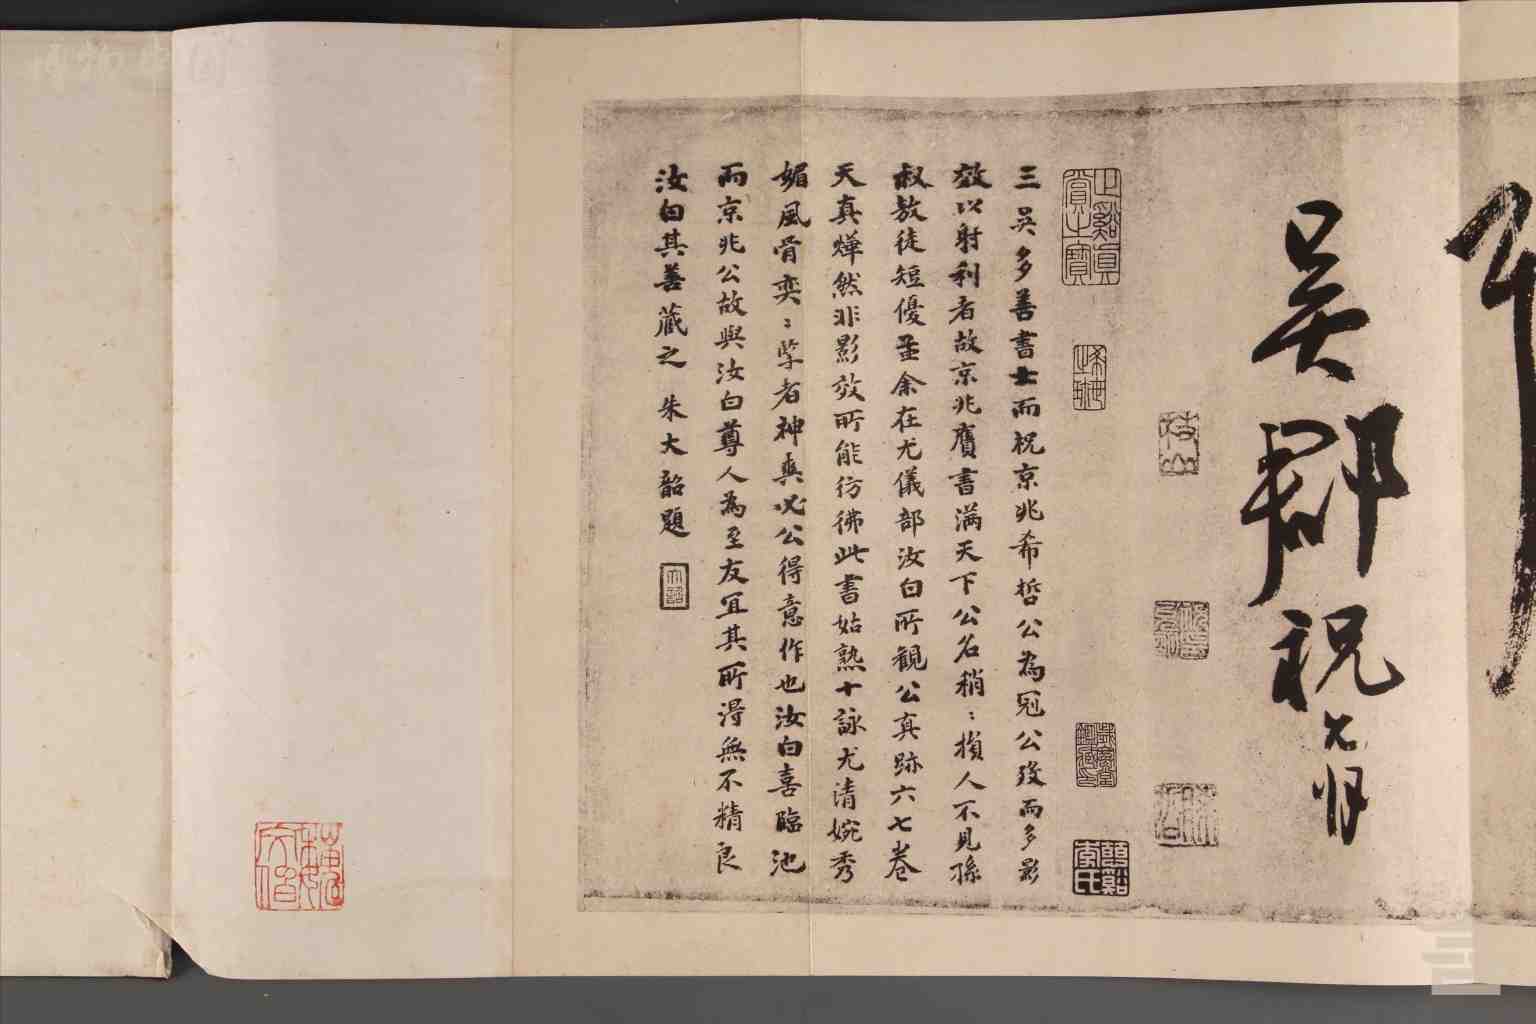 吳郡祝允明
三吳多善書士而祝京兆希哲公為冠公歿而多影
效以射利者故京兆贋書滿天下公名稍〻損人不見孫
叔敖徒短優孟余在尤儀部汝白所觀公真跡六七卷
天真燁然非影效所能彷彿此書姑熟十詠尤清婉秀
媚風骨奕〻摹者神爽必公得意作也汝白喜臨池
而京兆公故與汝白尊人為至友宜其所得無不精良
汝白其善藏之 朱大韶題
枝山
大韶
李氏
博物中國